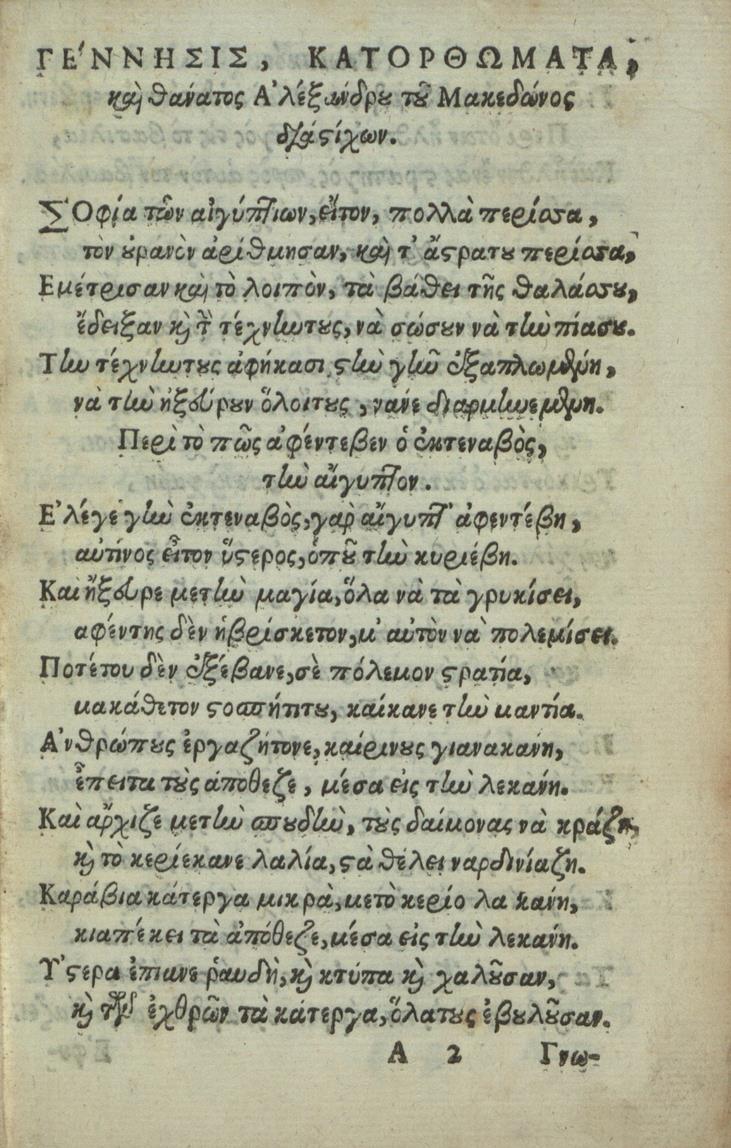 ΓΕ΄ΝΝΗΣΙΣ, ΚΑΤΟΡΘΩΜΑΤΑ,
καὶ θανάτος Α᾿λέξανδρου τοῦ Μακεδώνος
διὰ στίχων.
ΣΟφία τῶν αἰγύπτιων, εἶτον, πολλὰ περίσσα,
τὸν οὐρανὸν ἀρίθμησαν, καὶ τ᾿ ἄστρατου περίσσα,
Εμέτρισαν καὶ τὸ λοιπὸν, τὰ βάθει τῆς θαλάσσου,
ἔδειξαν καὶ τὴν τέχνηντους, νὰ σώσουν νὰ τὴν πίασου.
Τὴν τέχνηντους ἀφήκασι στὴν γῆν ἐξαπλωμένη,
νὰ τὴν ἠξεύρουν ὅλοιτους, νανε διαρμηνεμένη.
Περὶ τὸ πῶς ἀφέντεβεν ὁ ἐκτεναβὸς,
τὴν αἴγυπτον.
Ε᾿λέγεγην ἐκτεναβὸς, γαρ αἴγυπτ᾿ ἀφεντέβη,
αὐτίνος εἶτον ὕστερος, ὁποῦ τὴν κυριέβη.
Καὶ ἤξευρε μετὴν μαγία, ὅλα νὰ τὰ γρυκίσει,
αφέντης δὲν ἡβρίσκετον, μ᾿ αὐτὸν να πολεμίσει.
Ποτέτου δὲν ἐξέβανε, σὲ πόλεμον στρατία,
μακάθετον στοσπήτιτου, καίκανε τὴν μαντία.
Α᾿νθρώπους ἐργαζήτονε, καίρινους γιανακανη,
ἔπειτα τοὺς ἀπόθεζε, μέσα εἰς τὴν λεκάνη.
Καὶ ἄρχιζε μετὴν σπουδὴν, τοὺς δαίμονας νὰ κράζη,
καὶ τὸ κερίεκανε λαλία, στὰ θέλει ναρδινίαζη.
Καράβια κάτεργα μικρὰ, μετὸ κερίο λα κανη,
κιαπέκει τὰ ἀπόθεζε, μέσα εἰς τὴν λεκάνη.
Υ῞στερα ἐπιανε ῥαυδὴ, καὶ κτύπα καὶ χαλοῦσαν,
καὶ τῶν ἐχθρῶν τὰ κάτεργα, ὅλατους ἐβουλοῦσαν.
Α 2 Γνω-